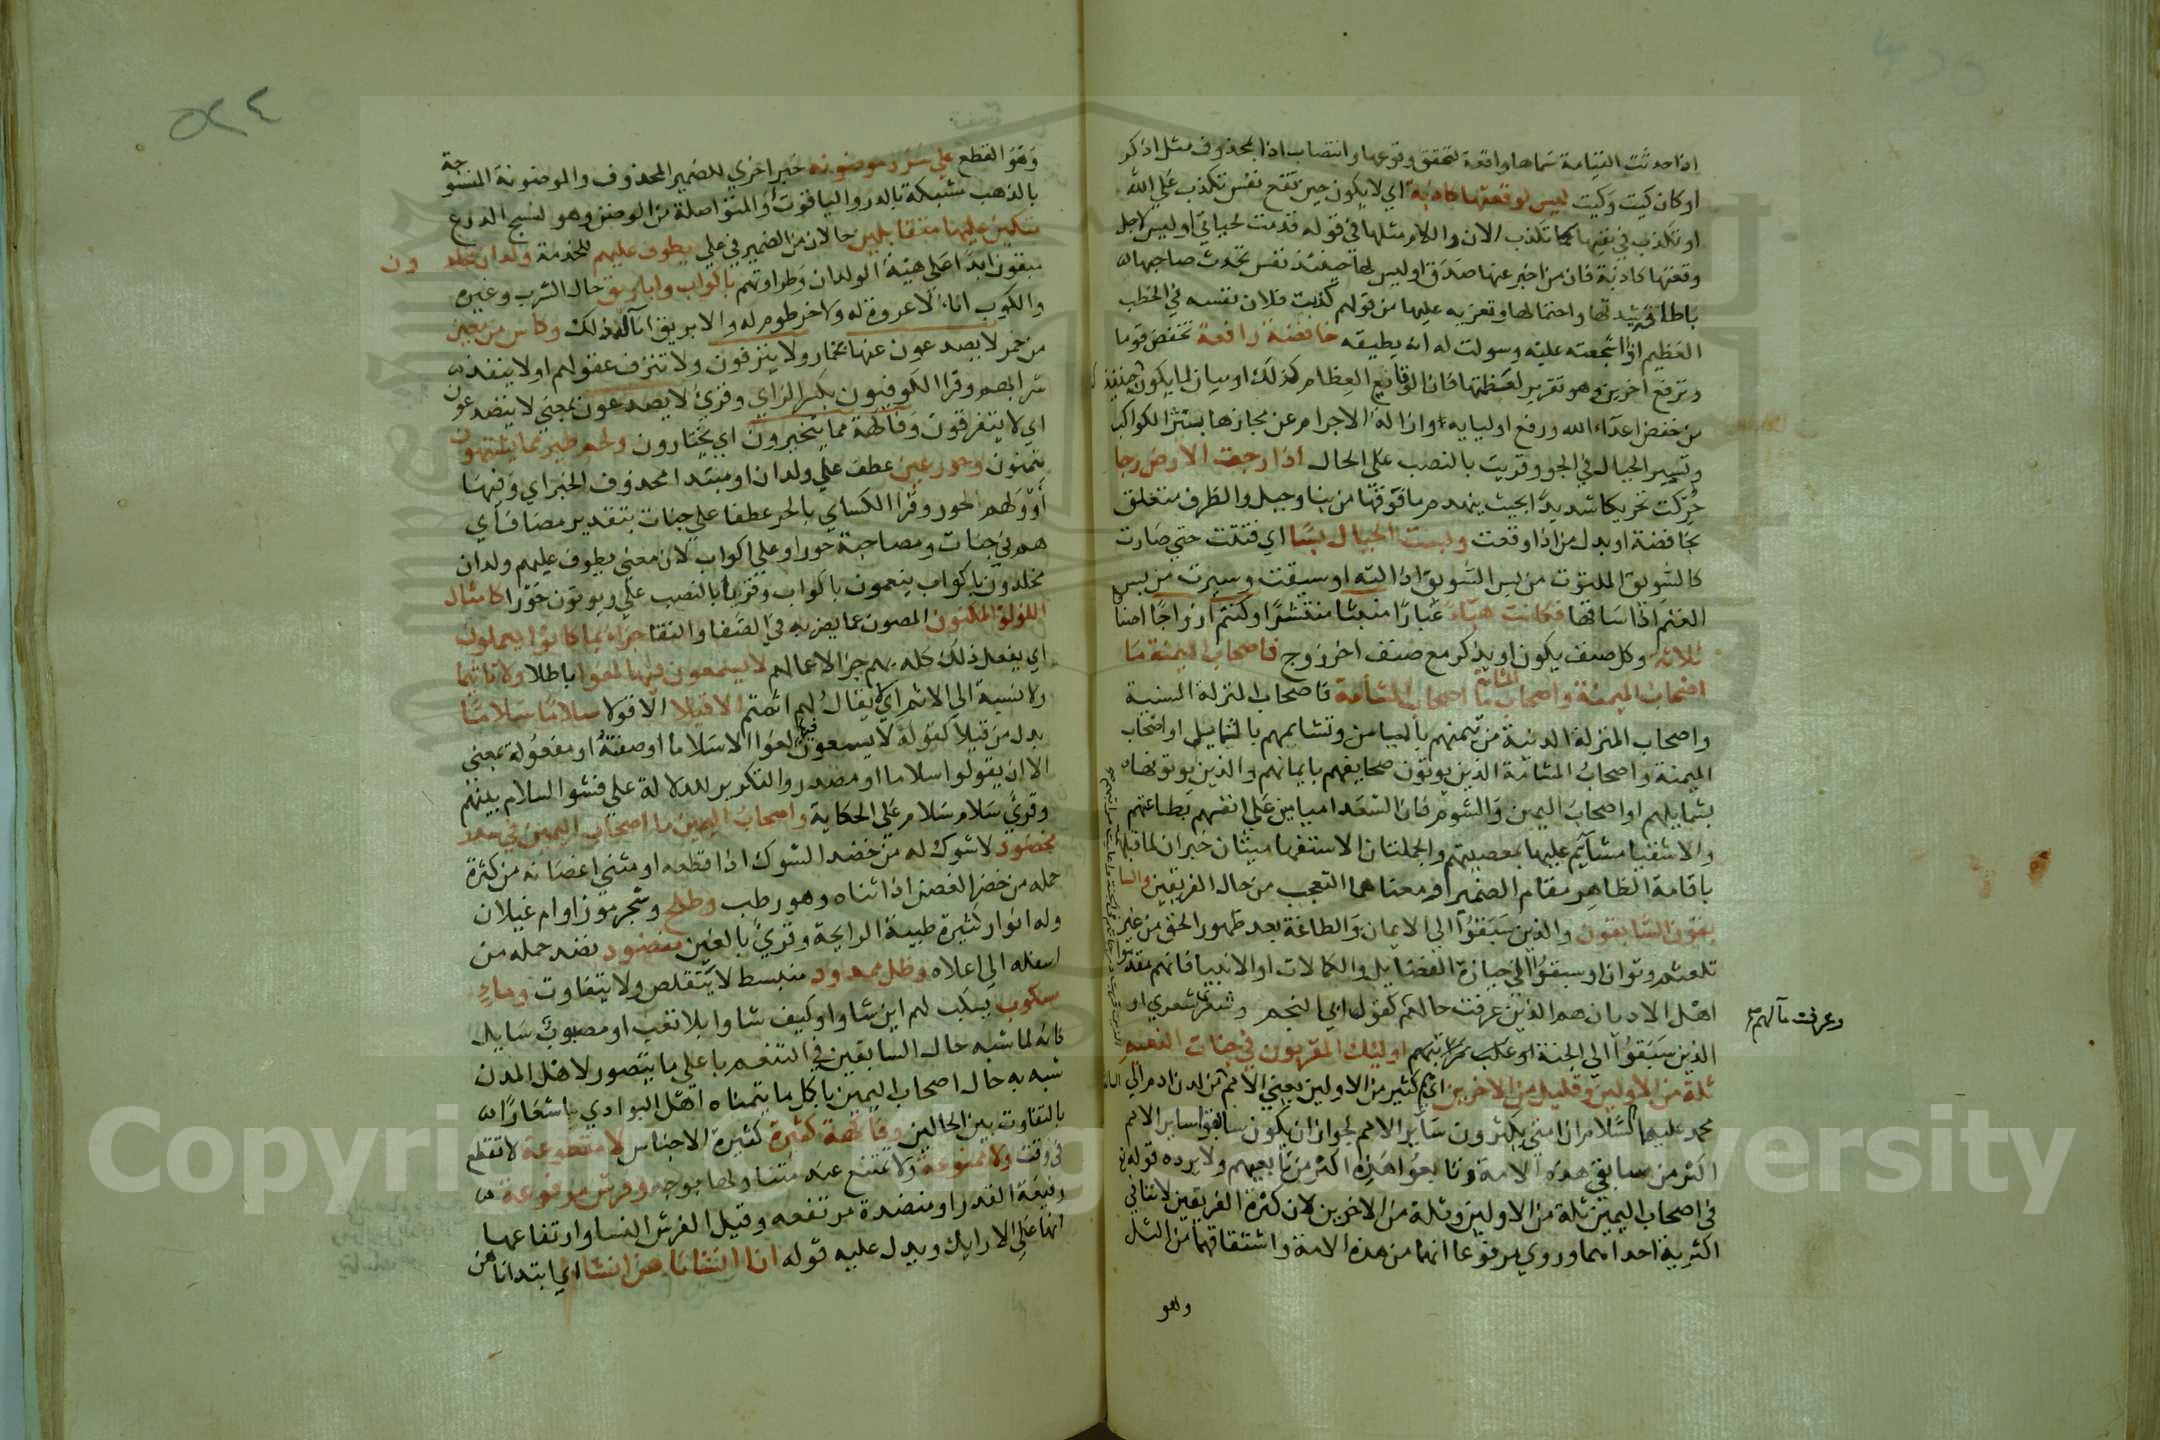 اذا حدثت القيامة سماها واقعة لتحقق وقوعها وانتصاب اذا بمحذوف مثل اذكر
او كان كيت وكيت ليس لوقعتها كاذبة اي لا يكون حين تقع نفس تكذب علي الله
او تكذب في نفيها كما تكذب الان واللام مثلها في قوله قدمت لحياتي او ليس لاجل
وقعتها كاذبة فان من اخبر عنها صدق او ليس لها حينئذ نفس تحدث صاحبها
باطاقة شدتها واحتمالها وتغريه عليها من قولهم كذبت فلان نفسه في الخطب
العظيم اذا شجعته عليه وسولت له انه يطيقه خافضة رافعة تخفض قوما
وترفع اخرين وهو تقرير لعظمتها فان الوقايع العظام كذلك او بيان لما يكون حينئذ
من خفض اعداء الله ورفع اوليايه وازالة الاجرام عن مجازها بنثر الكواكب
وتسيير الجبال في الجو وقريت بالنصب علي الحال اذا رجت الارض رجا
حركت تحريكا شديدا بحيث ينهدم ما فوقها من بنا وجبل والظرف متعلق
بخافضة او بدل من اذا وقعت وبست الجبال بسا اي فتتت حتي صارت
كالسويق الملتوت من بس السويق اذا لته او سيقت وسيرت من بس
الغنم اذا ساقها فكانت هباء غبارا منبثا منتشرا وكنتم ازواجا اصنافا
ثلاثة وكل صنف يكون او يذكر مع صنف اخر زوج فاصحاب الميمنة ما
اصحاب الميمنة واصحاب المشأمة ما اصحاب المشأمة فاصحاب المنزلة السنية
واصحاب المنزلة الدنية من تيمنهم بالميامن وتشايمهم بالشمايل او اصحاب
الميمنة واصحاب المشأمة الذين يوتون صحايفهم بايمانهم والذين يوتونها
بشمايلهم او اصحاب اليمن والشوم فان السعدا ميامين علي انفسهم بطاعتهم
والاشقيا مشأيم عليها بمعصيتهم والجملتان الاستفهاميتان خبران لما قبلهما
باقامة الظاهر مقام الضمير ومعناهما التعجب من حال الفريقين والسا
بقون السابقون والذين سبقوا الي الايمان والطاعة بعد ظهور الحق من غير
تلعثم وتوان او سبقوا في حيازة الفضايل والكمالات او الانبيا فانهم مقدموا
اهل الاديان هم الذين عرفت حالهم كقول ابي النجم وشعري شعري او
وعرفت مآلهم
الذين سبقوا الي الجنة اوليك المقربون في جنات النعيم
ثلة من الاولين وقليل من الاخرين اي هم كثير من الاولين يعني الامم من لدن ادم الي
محمد عليهما السلام ان امتي يكثرون ساير الامم لجواز ان يكون سابقوا ساير الامم
اكثر من سابقي هذه الامة وتابعوا هذه اكثر من تابعيهم ولا يرده قوله
في اصحاب اليمين ثلة من الاولين وثلة من الاخرين لان كثرة الفريقين لا تنافي
اكثرية احداهما وروي مرفوعا انهما من هذه الامة واشتقاقها من الثل
وهو
٥٢٤
وهو القطع علي سرر موضونة خبر اخري للضمير المحذوف والموضونة المنسوجة
بالذهب مشبكة بالدر والياقوت او المتواصلة من الوضن وهو نسج الدرع
متكئين عليها متقابلين حالان من الضمير في علي يطوف عليهم للخدمة ولدان مخلدون
مبقون ابدا علي هيئة الولدان وطراوتهم باكواب واباريق حال الشرب وغيره
والكوب انا لا عروة له ولا خرطوم له والابريق انا له ذلك وكأس من معين
من خمر لا يصدعون عنها بخمار ولا ينزفون ولا تنزف عقولهم او لا ينفد
شرابهم وقرا الكوفيون بكسر الزاي وقري لا يصدعون بمعني لا يتصدعون
اي لا يتفرقون وفاكهة مما يتخيرون اي يختارون ولحم طير مما يشتهون
يتمنون وحور عين عطف علي ولدان او مبتدا محذوف الخبر اي وفيها
او ولهم حور وقرا الكساي بالجر عطفا علي جنات بتقدير مضاف اي
هم في جنات ومصاحبة حور او علي اكواب لان معني يطوف عليهم ولدان
مخلدون باكواب ينعمون باكواب وقريا بالنصب علي ويوتون حورا كامثال
اللولو المكنون المصون عما يضر به في الصفا والنقا جزاء بما كانوا يعملون
اي يفعل ذلك كله بهم جزا لاعمالهم لا يسمعون فيها لغوا باطلا ولا تاثيما
ولا نسبة الي الاثم اي لا يقال لهم اثمتم الا قيلا الا قولا سلاما سلاما
بدل من قيلا كقوله لا يسمعون فيها لغوا الا سلاما او صفته او مفعوله بمعني
الا ان يقولوا سلاما او مصدر والتكرير للدلالة علي فشو السلام بينهم
وقري سلام سلام علي الحكاية واصحاب اليمين ما اصحاب اليمين في سدر
مخضود لا شوك له من خضد الشوك اذا قطعه او مثني اغصانه من كثرة
حمله من خضد الغصن اذا ثناه وهو رطب وطلح وشجر موز او ام غيلان
وله انوار كثيرة طيبة الرايحة وقري بالعين منضود نضد حمله من
اسفله الي اعلاه وظل ممدود منبسط لا يتقلص ولا يتفاوت وماء
مسكوب يسكب لهم اين شاوا وكيف شاوا بلا تعب او مصبوب سايل
كانه لما شبه حال السابقين في التنعم باعلي ما يتصور لاهل المدن
شبه به حال اصحاب اليمين باكمل ما يتمناه اهل البوادي اشعارا
بالتفاوت بين الحالين وفاكهة كثيرة كثيرة الاجناس لا مقطوعة لا تقطع
في وقت ولا ممنوعة ولا تمتنع عن متناولها بوجه وفرش مرفوعة
رفيعة القدر او منضدة مرتفعه وقيل الفرش النسا وارتفاعها
انها علي الارايك ويدل عليه قوله انا انشاناهن انشا اي ابتداناهن
Copyright © King Saud University